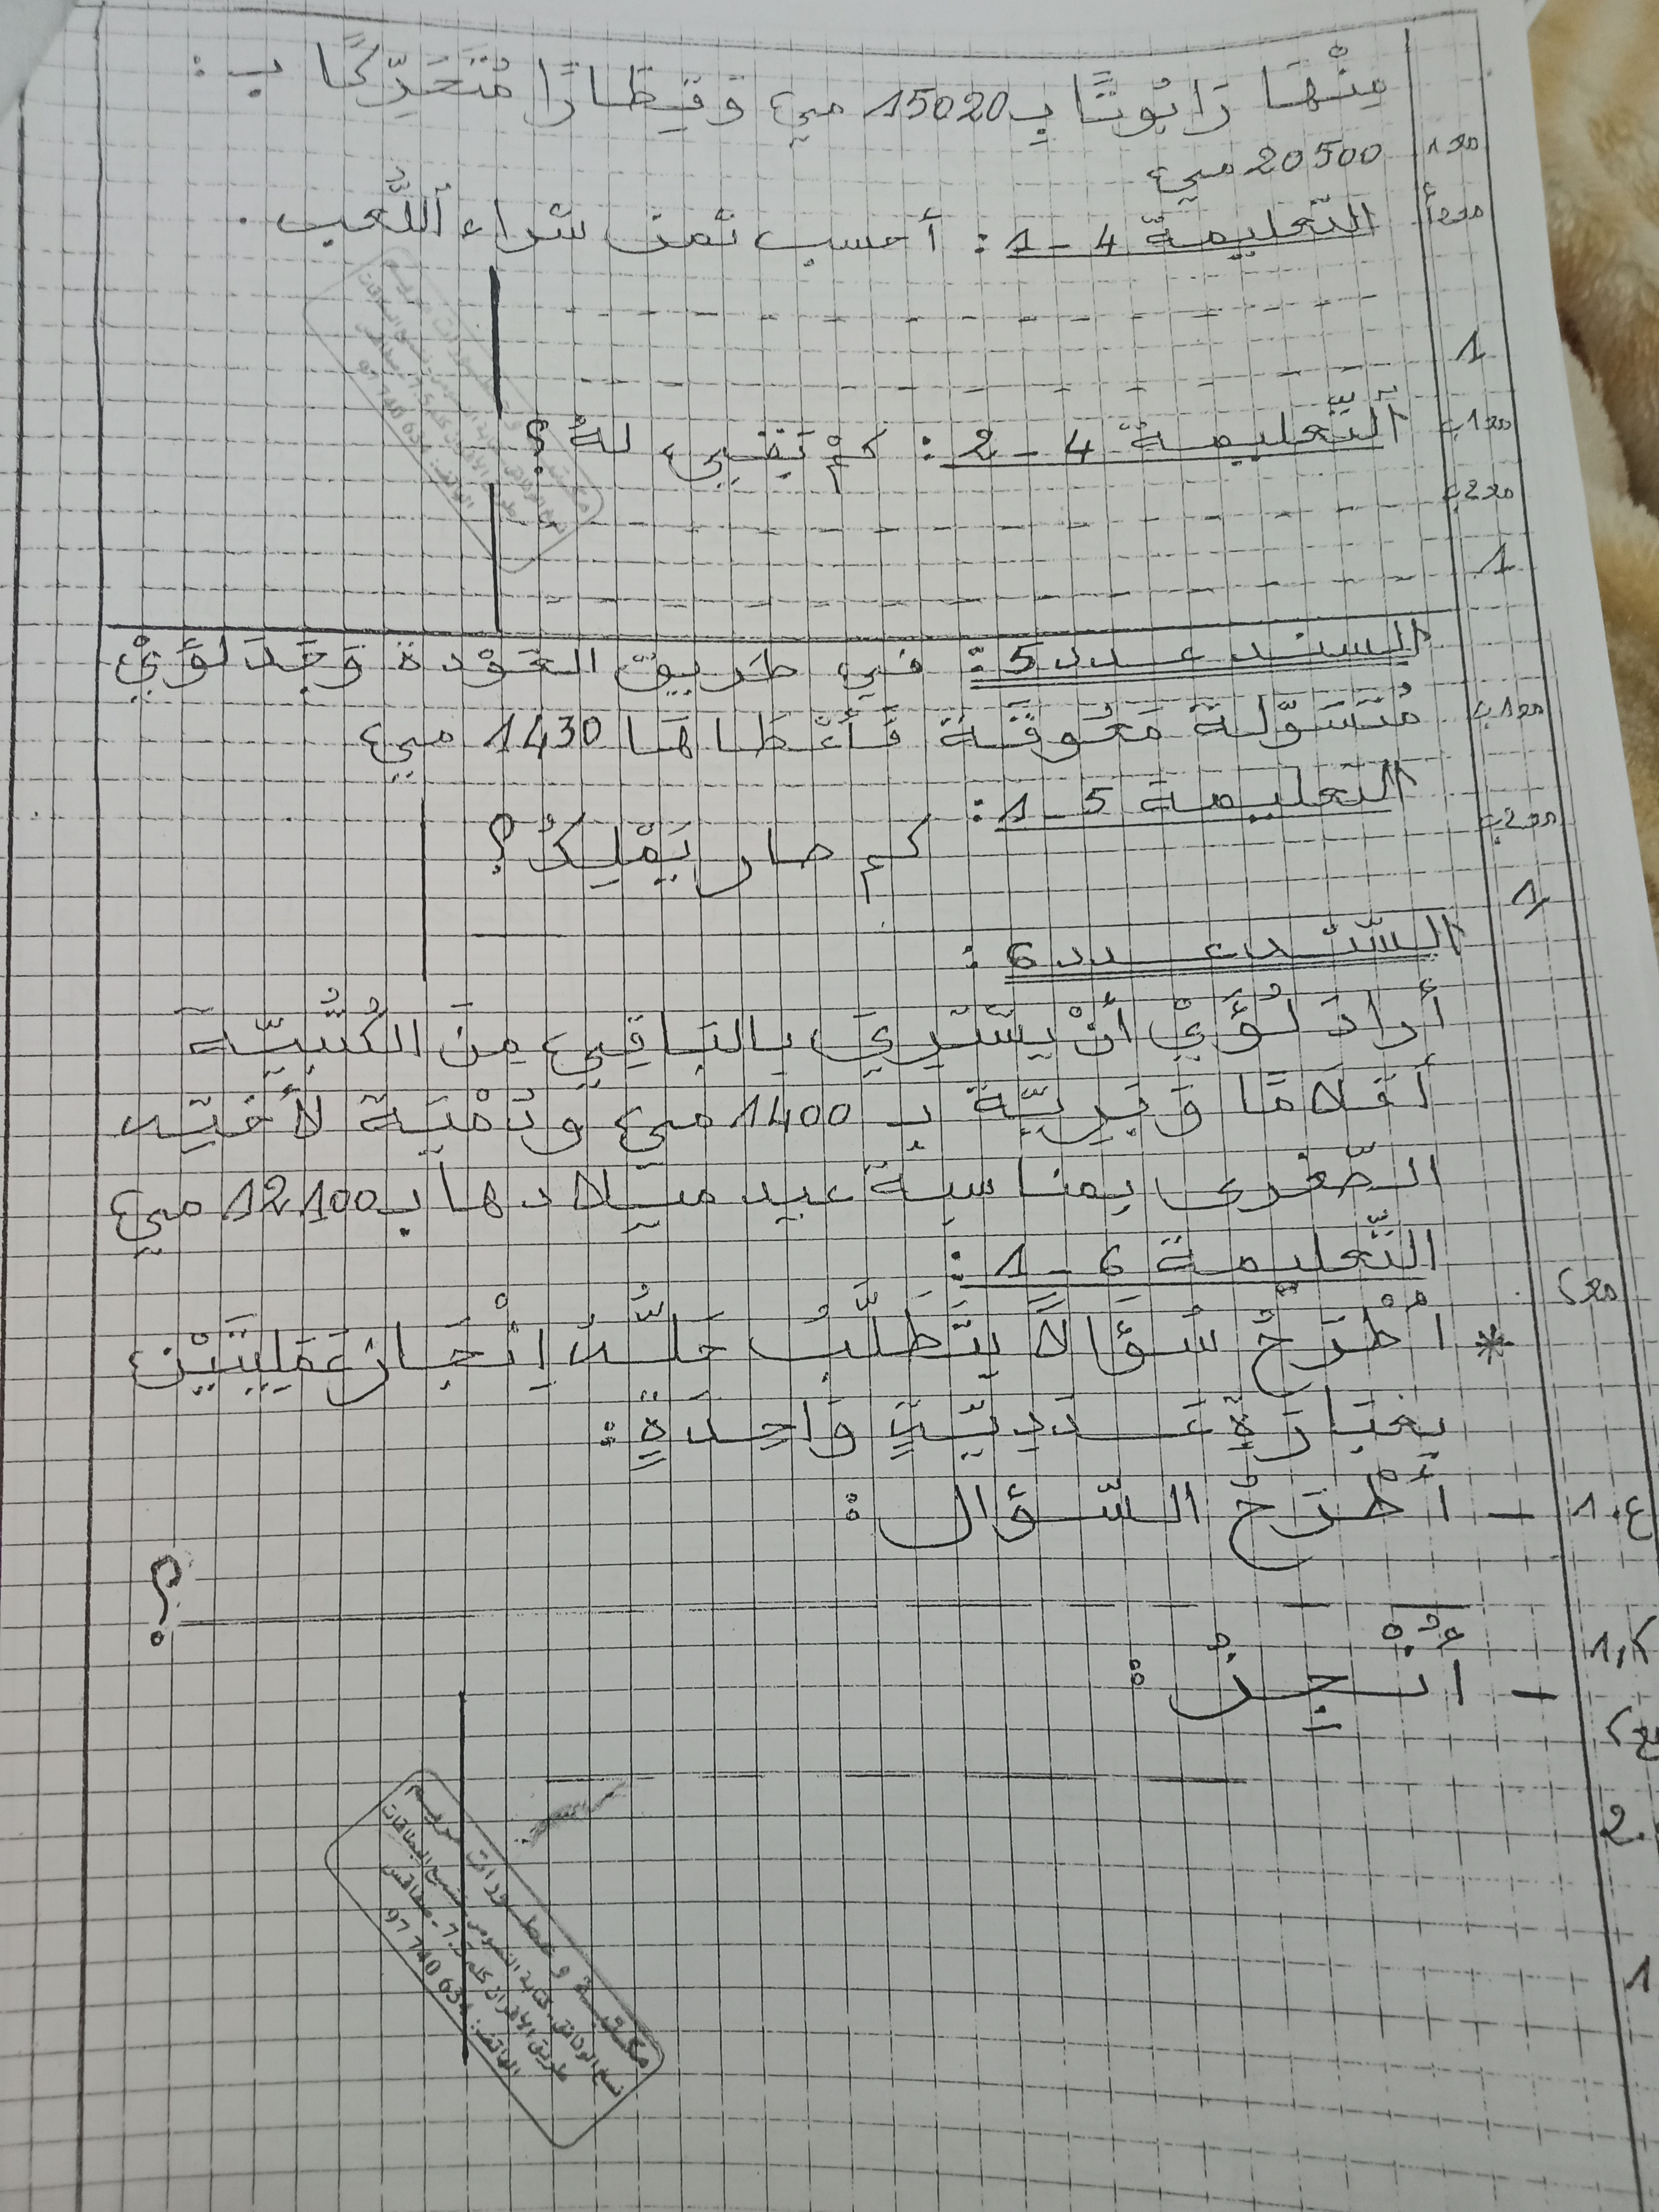 مِنْهَا رَابُوتًا بـ 15020 مي وَقِطَارًا مُتَحَرِّكًا بـ :
20500 مي
التّعليمة 4 - 1 : أحسب ثمن شراء اللُّعب .
التّعليمة 4 - 2 : كَمْ بَقِيَ لَهُ ؟
السند عدد 5 : في طَريق العَوْدة وَجَدَ لُؤَيْ
مُتَسَوِّلة مَعُوقَة فَأَعْطَاهَا 1430 مي
التعليمة 5 - 1 :
كم صار يَمْلِكُ ؟
السّند عدد 6 :
أرادَ لُؤَيْ أنْ يشْتَرِيَ بالبَاقِي مِنَ الكُتْبِيّة
أقلامًا وَبَرِيّة بـ 1400 مي ودُمْيَة لأختِه
الصّغرى بمناسبة عيد ميلادها بـ 12100 مي
التّعليمة 6 - 1 :
* اُطْرَحْ سُؤَالاً يتَطَلَّبُ حَلُّهُ اِنْجَازَ عَمَلِيَّتَيْنِ
بِعِبَارَةٍ عَدَدِيَّةٍ وَاحِدَةٍ :
- أَطْرَحُ السّؤال :
؟
- أُنْجِزُ :
مكتبة و مخطوطات مريم
نسخ الوثائق - كتابة النصوص - سحب البطاقات
طريق الافران كلم 7.5 - صفاقس
الهاتف : 97 740 631
1
1
1